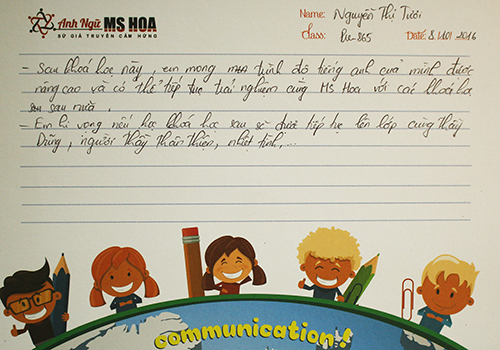 Anh Ngữ MS HOA
SỨ GIẢ TRUYỀN CẢM HỨNG
Name: Nguyễn Thị Tươi
Class: Pre-865 Date: 8/10/2016
- Sau khoá học này, em mong trình độ tiếng anh của mình được
nâng cao và có thể tiếp tục trải nghiệm cùng MS Hoa với các khoá học
sau nữa.
- Em hi vọng nếu học khoá học sau sẽ được tiếp tục lên lớp cùng thầy
Dũng, người thầy thân thiện, nhiệt tình,...
communication!